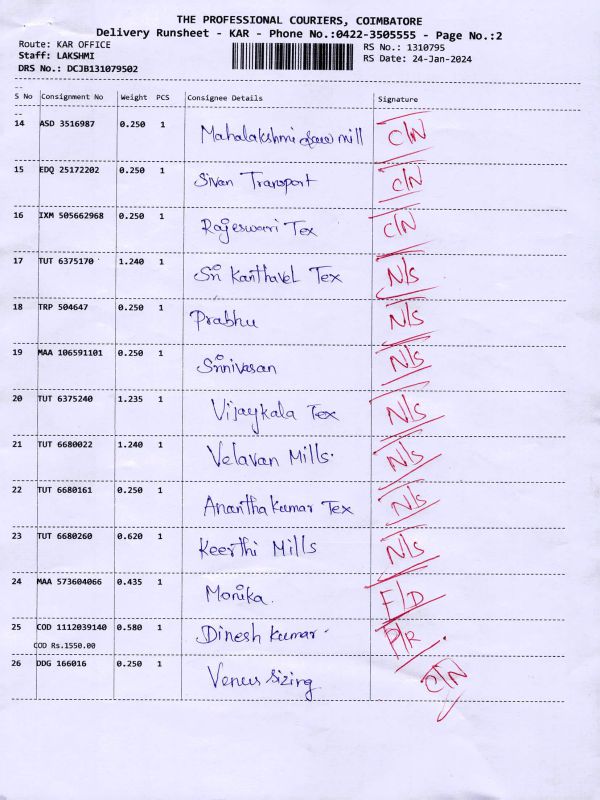 THE PROFESSIONAL COURIERS, COIMBATORE
Delivery Runsheet - KAR - Phone No.:0422-3505555 - Page No.:2
Route: KAR OFFICE RS No.: 1310795
Staff: LAKSHMI RS Date: 24-Jan-2024
DRS No.: DCJB131079502
S No Consignment No Weight PCS Consignee Details Signature
14 ASD 3516987 0.250 1 Mahalakshmi Saw mill C/N
15 EDQ 25172202 0.250 1 Sivan Transport C/N
16 IXM 505662968 0.250 1 Rajeswari Tex C/N
17 TUT 6375170 1.240 1 Sri Kanthavel Tex N/S
18 TRP 504647 0.250 1 Prabhu N/S
19 MAA 106591101 0.250 1 Srinivasan N/S
20 TUT 6375240 1.235 1 Vijaykala Tex N/S
21 TUT 6680022 1.240 1 Velavan Mills. N/S
22 TUT 6680161 0.250 1 Anantha Kumar Tex N/S
23 TUT 6680260 0.620 1 Keerthi Mills N/S
24 MAA 573604066 0.435 1 Monika. F/D
25 COD 1112039140 0.580 1 Dinesh Kumar. P/R.
COD Rs.1550.00
26 DDG 166016 0.250 1 Venus Sizing C/N